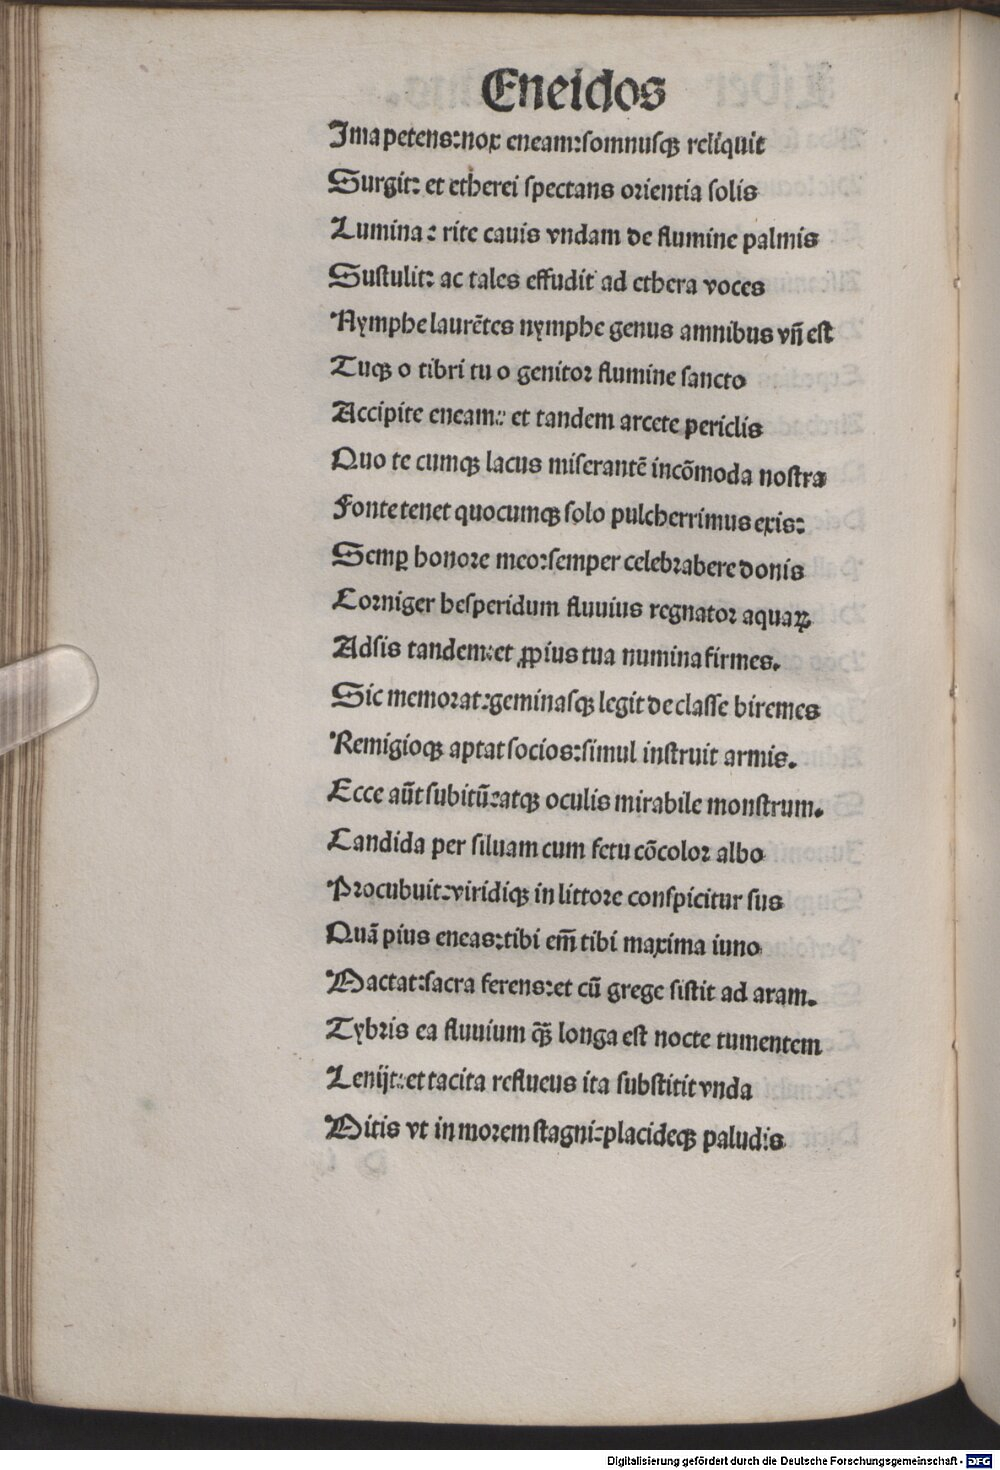 Eneidos
Ima petens: nox eneam: somnusqꝫ reliquit
Surgit: et etherei spectans orientia solis
Lumina: rite cauis vndam de flumine palmis
Sustulit: ac tales effudit ad ethera voces
Nymphe laurētes nymphe genus amnibus vñ est
Tuqꝫ o tibri tu o genitor flumine sancto
Accipite eneam: et tandem arcete periclis
Quo te cumqꝫ lacus miserantē incōmoda nostra
Fonte tenet quocumqꝫ solo pulcherrimus exis:
Semꝑ honore meo: semper celebrabere donis
Corniger hesperidum fluuius regnator aquaꝝ
Adsis tandem: et ꝓpius tua numina firmes.
Sic memorat: geminasqꝫ legit de classe biremes
Remigioqꝫ aptat socios: simul instruit armis.
Ecce aūt subitū: atqꝫ oculis mirabile monstrum.
Candida per siluam cum fetu cōcolor albo
Procubuit: viridiqꝫ in littore conspicitur sus
Quā pius eneas: tibi em̄ tibi maxima iuno
Mactat: sacra ferens: et cū grege sistit ad aram.
Tybris ea fluuium qꝫ̄ longa est nocte tumentem
Lenijt: et tacita reflueus ita substitit vnda
Mitis vt in morem stagni: placideqꝫ paludis
Digitalisierung gefördert durch die Deutsche Forschungsgemeinschaft - DFG